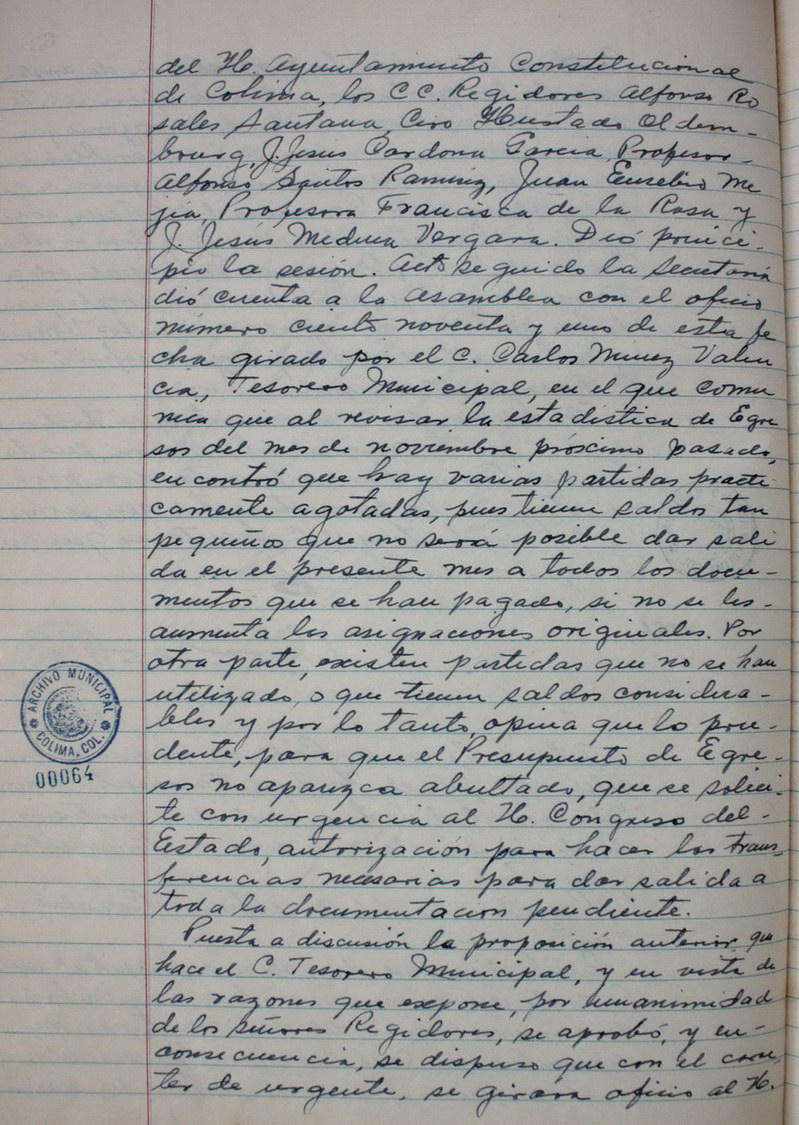 del H. Ayuntamiento Constitucional
de Colima, los CC. Regidores Alfonso Ro
sales Santana, Ciro Hurtado Oldem-
bourg, J. Jesús Cardona García, Profesor-
Alfonso Santos Ramírez, Juan Eusebio Me
jía, Profesora Francisca de la Rosa y
J. Jesús Medina Vergara. Dió princi-
pio la sesión. Acto seguido la Secretaría
dió cuenta a la asamblea con el oficio
número ciento noventa y uno de esta fe
cha girado por el C. Carlos Nuñez Valen
cia, Tesorero Municipal, en el que comu
nica que al revisar la estadística de Egre
sos del mes de noviembre próximo pasado,
encontró que hay varias partidas practi
camente agotadas, pues tienen saldos tan
pequeños que no será posible dar sali
da en el presente mes a todos los docu-
mentos que se han pagado, si no se les-
aumenta las asignaciones originales. Por
otra parte, existen partidas que no se han
utilizado, o que tienen saldos considera-
bles y por lo tanto, opina que lo pru-
dente, para que el Presupuesto de Egre-
sos no aparezca abultado, que se solici-
te con urgencia al H. Congreso del-
Estado, autorización para hacer las trans-
ferencias necesarias para dar salida a
toda la documentación pendiente.
Puesta a discusión la proposición anterior que
hace el C. Tesorero Municipal, y en vista de
las razones que expone, por unanimidad
de los señores Regidores, se aprobó, y en-
consecuencia, se dispuso que con el carac
ter de urgente, se girara oficio al H.
ARCHIVO MUNICIPAL
COLIMA, COL.
00064